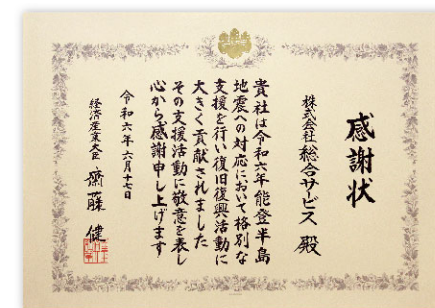 感謝状
株式会社総合サービス 殿
貴社は令和六年能登半島
地震への対応において格別な
支援を行い復旧復興活動に
大きく貢献されました
その支援活動に敬意を表し
心から感謝申し上げます
令和六年六月十七日
経済産業大臣 齋藤 健